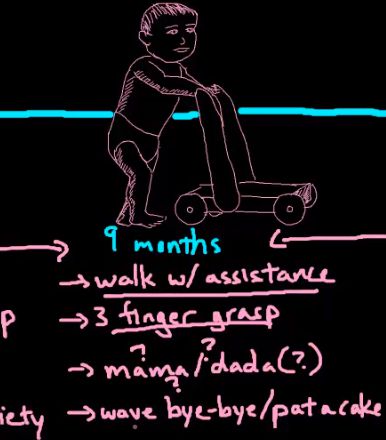 9 months
→ walk w/ assistance
p → 3 finger grasp
? ?
→ mama/dada(?)
?
iety → wave bye-bye/patacake